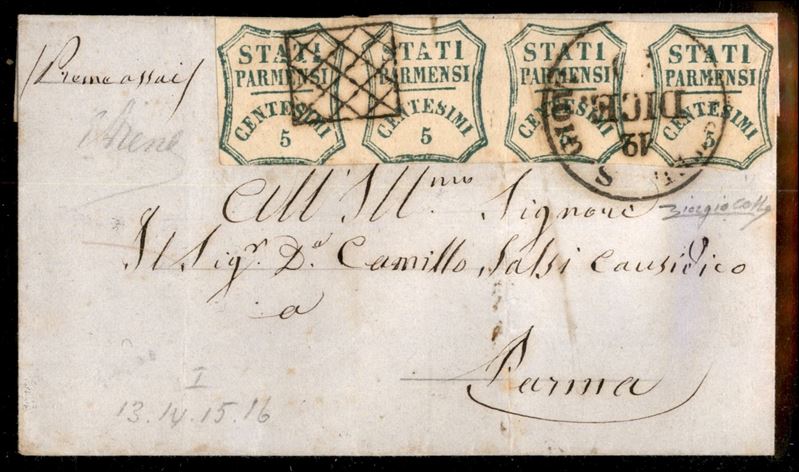 STATI PARMENSI CENTESIMI 5
STATI PARMENSI CENTESIMI 5
STATI PARMENSI CENTESIMI 5
STATI PARMENSI CENTESIMI 5
12 DICE
Preme assai
All' Ill.mo Signore
Il Sig.r D.r Camillo Salsi Causidico
a
Parma
I
13.14.15.16